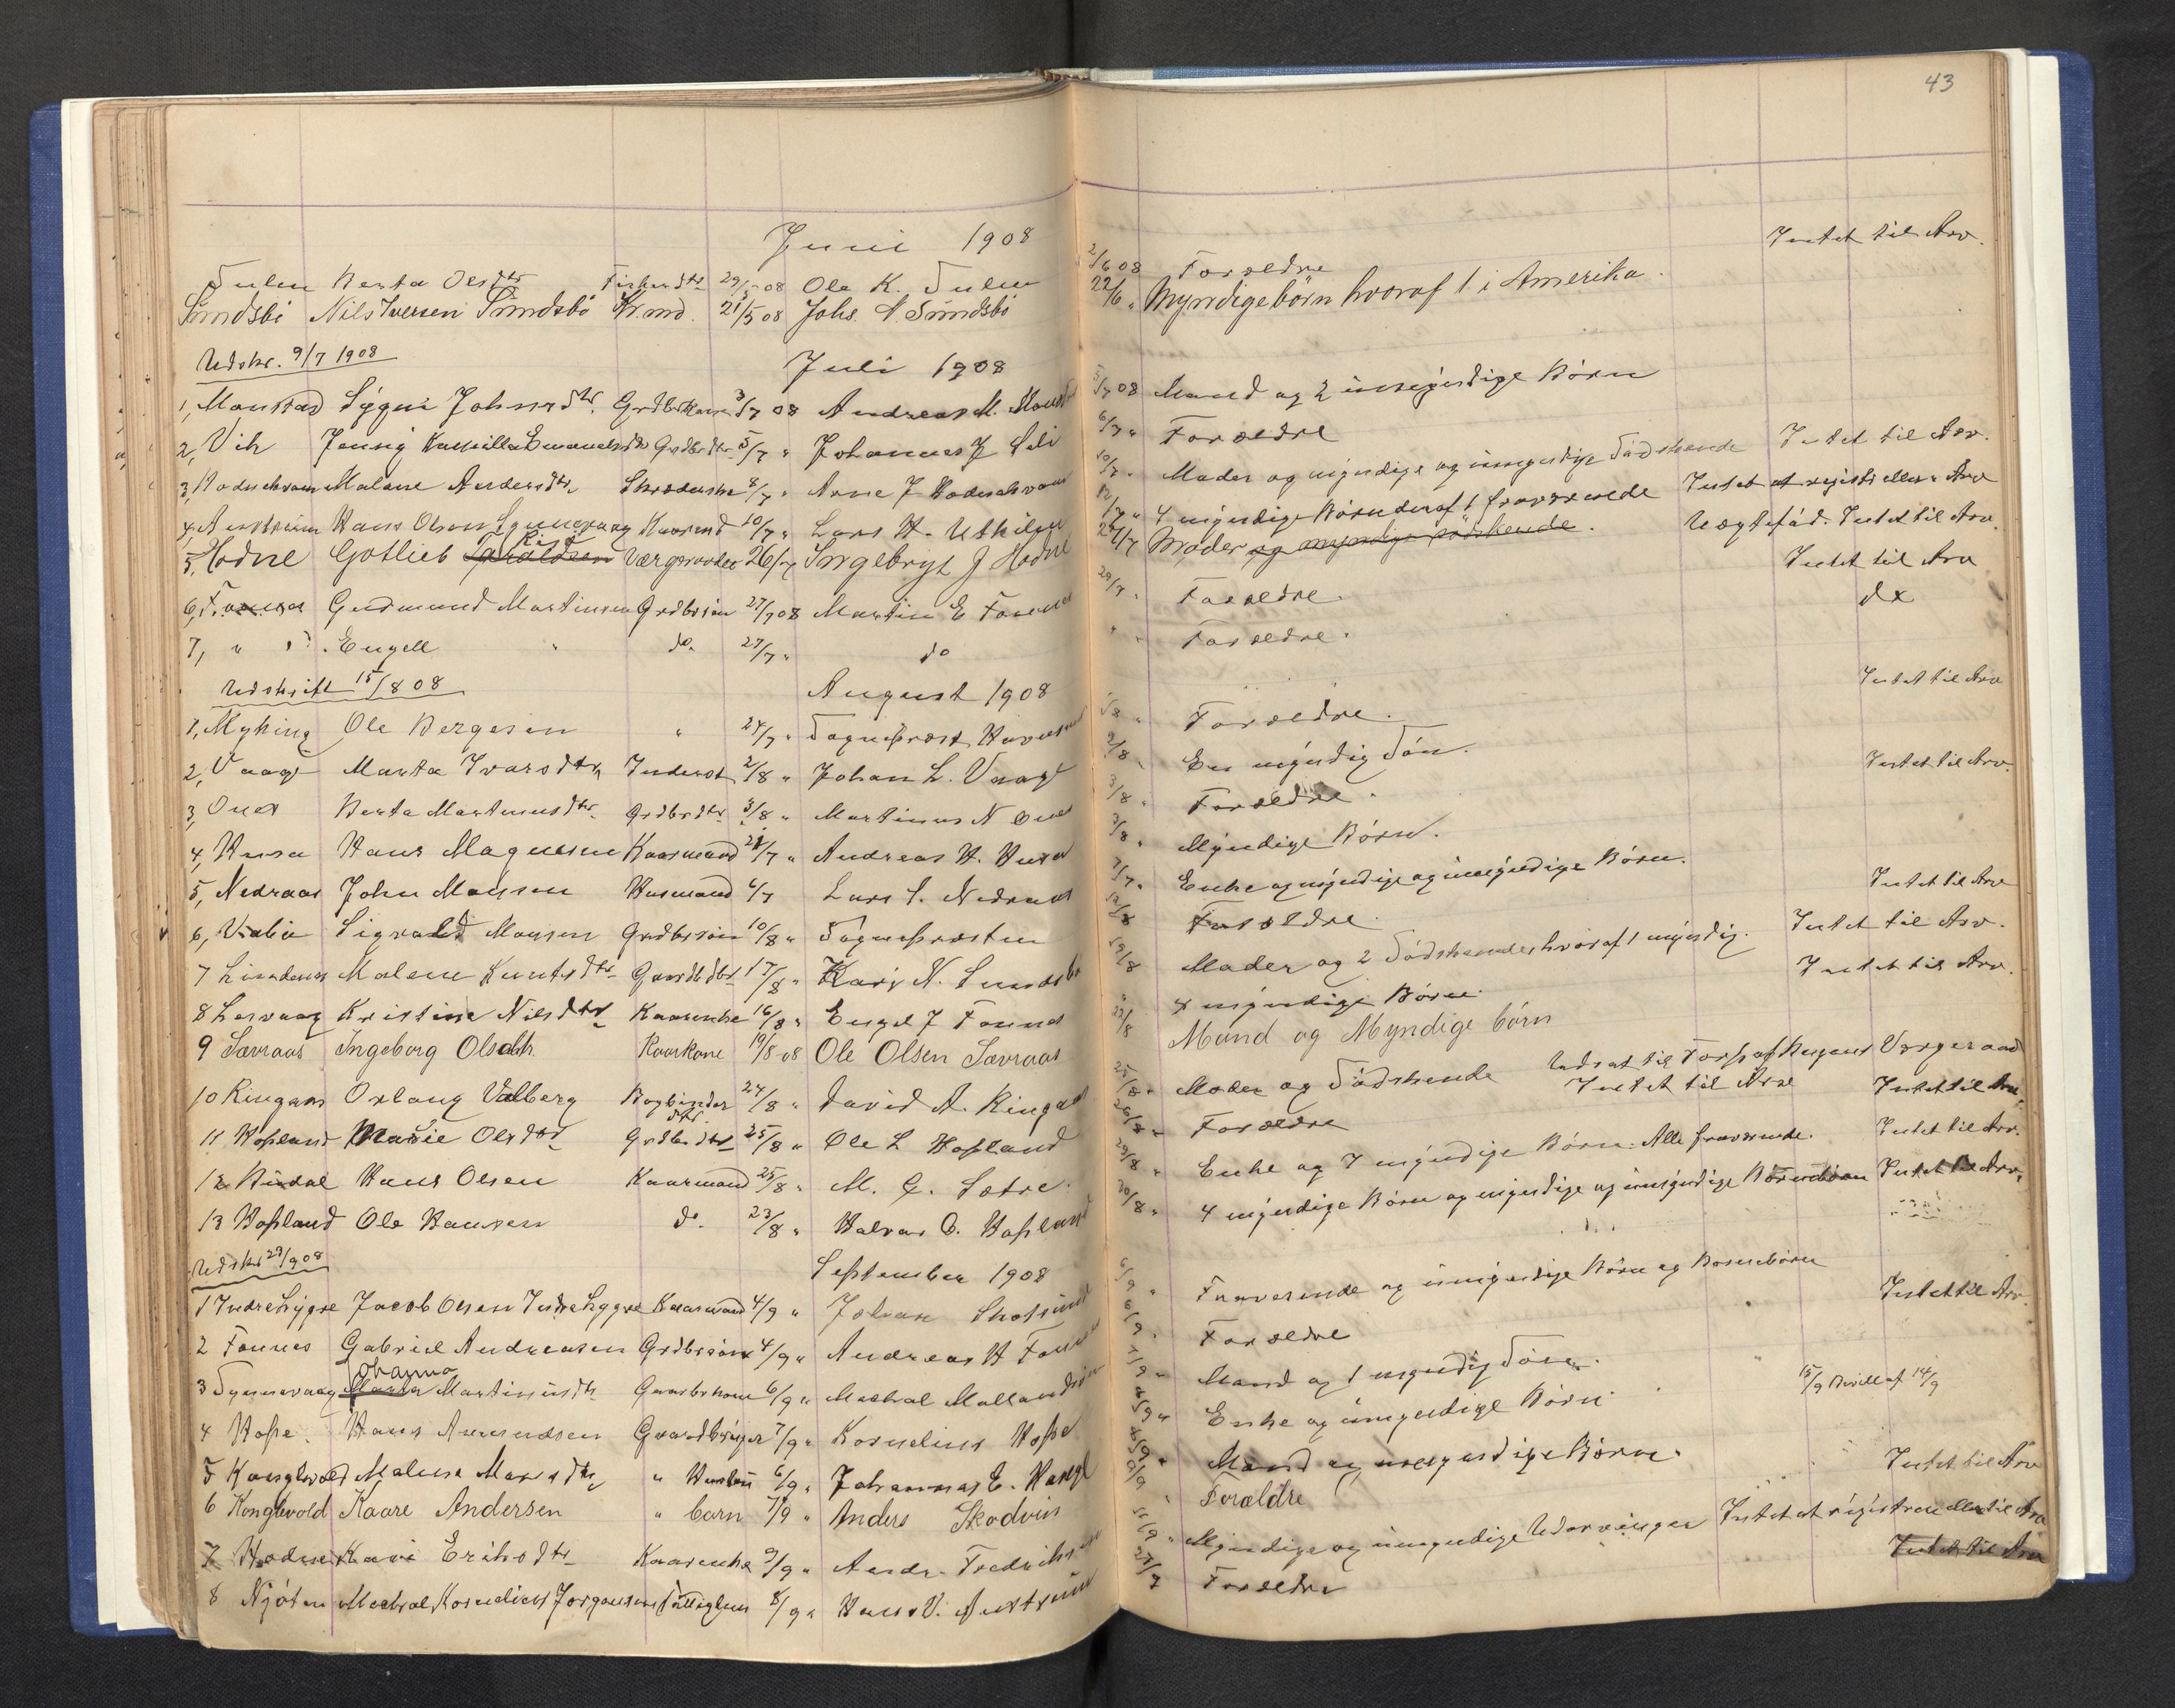 43
Juni 1908
Berta Olsdtr Fiskerdtr 29/5 08 Ole K. 2/6 08 Forældre Intet til Arv.
Sundsbö Nils Iversen Sundsbö Krmd. 21/5 08 Johs. N. Sundsbö 22/6 " Myndige börn hvoraf 1 i Amerika.
Udskr. 9/7 1908
Juli 1908
1, Monstad Johnsdtr. 3/7 08 Andreas M. 5/7 08 Mand og 2 umyndige Börn
2, Vik Jensy Emanuelsdtr Grdbrdtr 5/7 " Johannes J 6/7 " Forældre Intet til Arv.
3, Malene Andersdtr. 8/7 " Arne J 10/7 " Moder og myndige og umyndige Sødskende Intet at registr eller Arv
4, Austrheim Hans Olsen Kaarmd 10/7 " Lars H. 4 myndige Börn deraf 1 fraværende Vægtsfad. Intet til Arv.
5, Hodne Gotlieb Værgeraadet 26/7 Ingebrigt J Hodne Moder og myndige södskende. Intet til Arv
6, Fonnes Gudmund Martinsen Grdbrsön 27/7 08 Martin E Fonnes 29/7 " Forældre. do
7, " Engell " do. 27/7 " do " " Forældre.
Udskrift 15/8 08
August 1908
1, Myking Ole Bergesen " 24/7 " Sogneprest Forældre. Intet til Arv
2, Vaage Marta Ivarsdtr. Inderst 2/8 " Johan L. Vaage 2/8 En myndig Sön.
3, Ones Berta Martinusdtr. Grdbrdtr 3/8 " Martinus N Ones 3/8 " Forældre. Intet til Arv.
4, Husa Hans Magnesen Kaarmand 21/7 " Andreas H. Husa 3/8 " Myndige Börn.
5, Nedraas John Monsen Husmand 6/7 Lars S. Nedraas 7/7 " Enke og myndige og umyndige Börn.
6, Sigvald Monsen Grdbrsön 10/8 " Sognepresten 12/8 Forældre. Intet til Arv
7 Lindaas Malene Knutsdtr Gaardbdtr 17/8 " Kari N. Sundsbö 19/8 Moder og 2 Sødskende, hvoraf 1 myndig. Intet til Arv.
8 Kristine Nilsdtr Kaarenke 16/8 " Engel J Fonnes " 4 myndige Börn. Intet til Arv.
9 Sævraas Ingeborg Olsdtr. Kaarkone 19/8 08 Ole Olsen Sævraas 23/8 Mand og Myndige börn
10 Ringaas Oxlaug Valberg Bogbinder dtr. 24/8 " David A. Ringaas 25/8 " Moder og Sødskende Udsat til Forsp af Kegens Værgeraad Intet til Arv
11 Hopland Marie Olsdtr Grdbrdtr 25/8 " Ole L Hopland 26/8 " Forældre Intet til Arv.
12 Hans Olsen Kaarmand 25/8 " M. G. Sætre. 29/8 " Enke og 7 myndige Börn. Alle fraværende. Intet til Arv.
13 Hopland Ole Hansen do. 23/8 " Halvor O. Hopland 30/8 " 4 myndige Börn og myndige og umyndige Börnebörn Intet til Arv.
Udskr 29/9 08
September 1908
1 Indre Lygre Jacob Olsen Indre Lygre Kaarmand 4/9 " Johan 6/9 " Fraverende og umyndige Börn og Börnebörn
2 Fonnes Gabriel Andreasen Grdbrsön 4/9 " Andreas H Fonnes 6/9 " Forældre Intet til Arv.
3 Synnevaag Marta Johanna Martinusdtr Gaardbrkone 6/9 " Mikal 7/9 " Mand og 1 myndig Sön.
4 Hope. Hans Amundsen Gaardbruger 7/9 " Kornelius Hope 8/9 " Enke og umyndige Börn. 15/9 Bevill af 14/9
5 Konglevold Malena Monsdtr. " 6/9 " Johannes E. 8/9 " Mand og umyndige Börn.
6 Konglevold Kaare Andersen " barn 7/9 " Anders Skodvin 9/9 " Forældre Intet til Arv
7 Hodne Kari Eriksdtr Kaarenke 9/9 " Andr. Fredriksen 11/9 " Myndige og umyndige Udarvinger Intet at registrere eller til Arv
8 Njöten Mikal Kornelius Jörgensen Fattiglem 8/9 " Hans V. Austrheim Forældre Intet til Arv